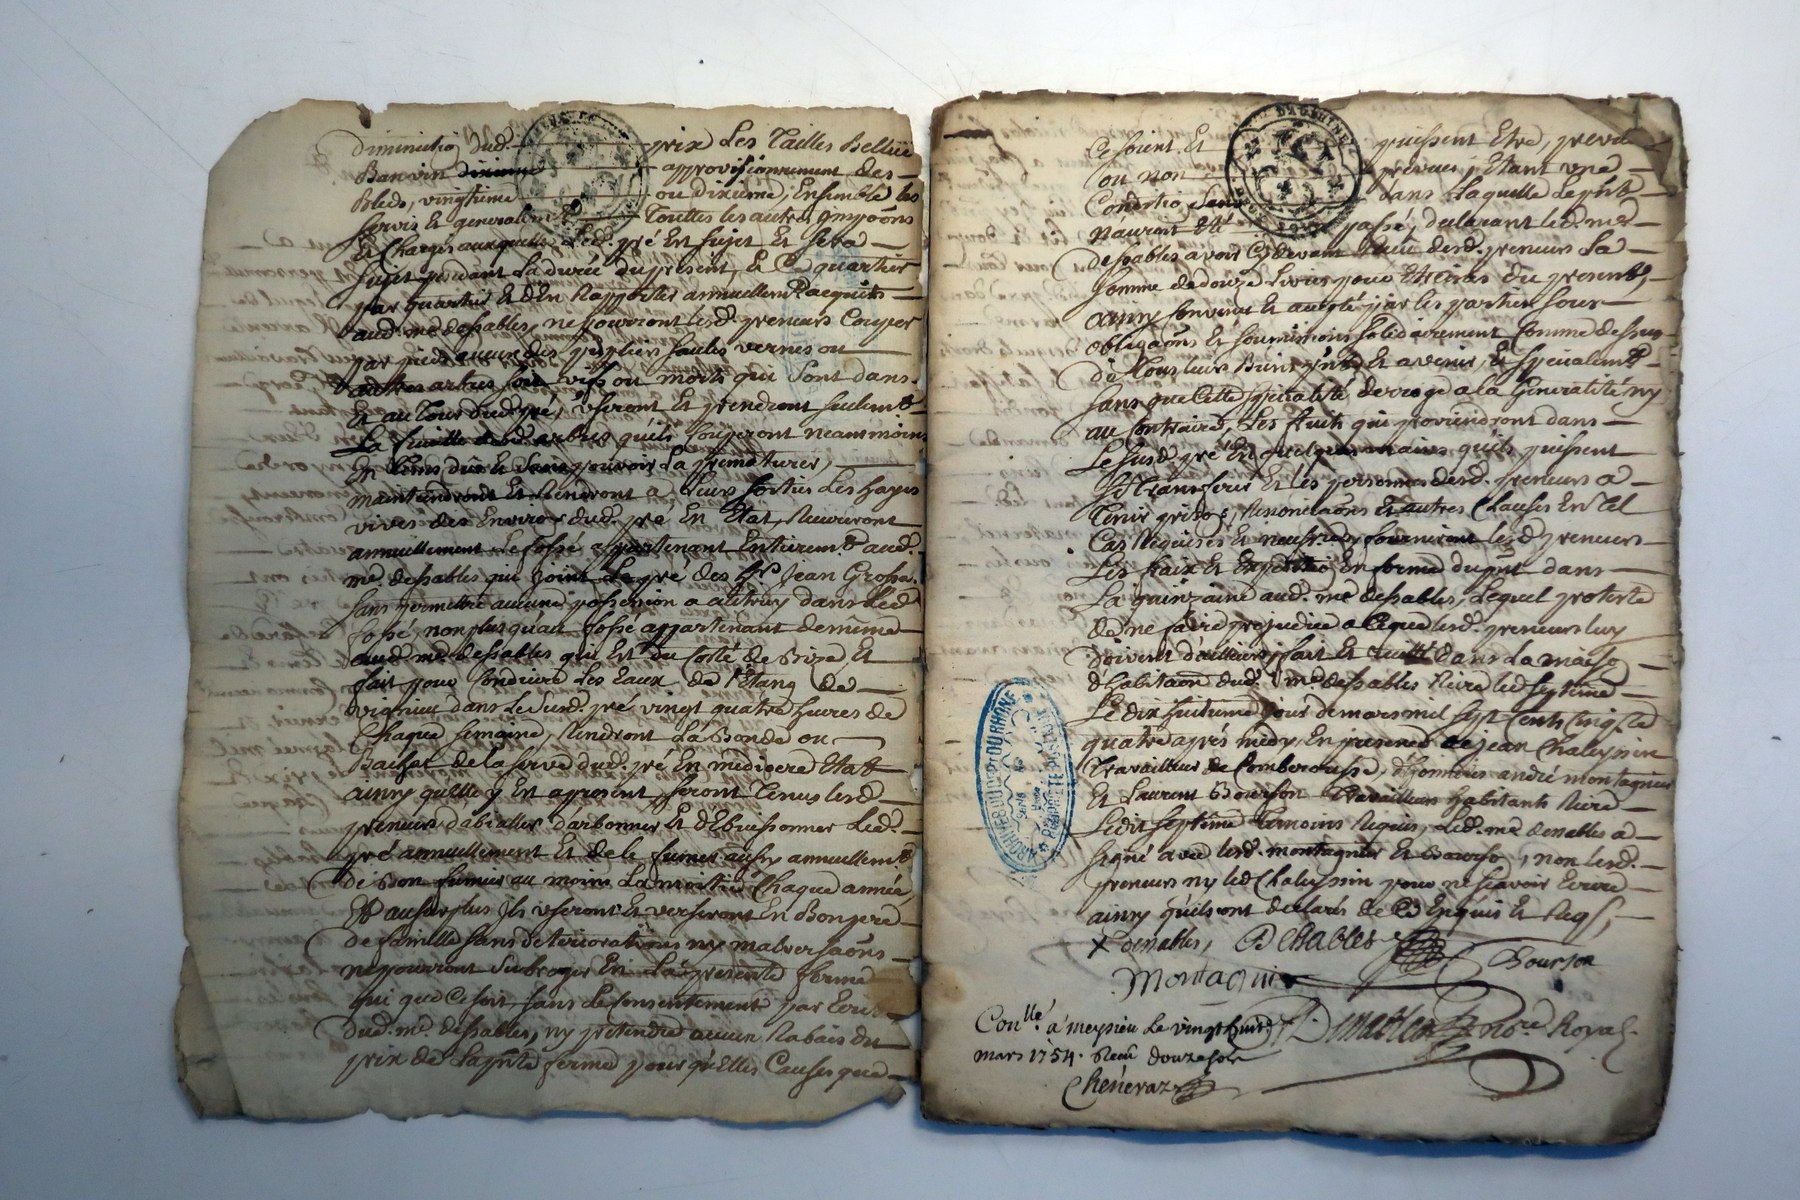 diminutio dud. prix Les Tailles
Banvin dixieme approvisionnement des
Bleds, vingtieme ou dixieme, Ensemble les
servis Et generalem.t Touttes les autres
Et Charges auxquelles Led. pré Est sujet Et sera
sujet pendant La durée du present, & Ce quartier
par quartier Et d'En Rapporter annuellem.t acquits
aud. me. desables, ne pourront lesd. preneurs Couper
par pied aucun des peupliers saules vernes ou
autres arbres soit vifs ou morts qui sont dans
Et au Tour dud. pré, useront Et prendront seulem.t
La feuille desd. arbres qu'ils Couperont neansmoins
En Tems dû Et sans pouvoir La prematurer,
maintiendront Et Rendront a Leur sortie Les hayes
vives des Environs dud. pré En Etat, Recureront
annuellement Le fossé appartenant Entierem.t aud.
me. desables qui joint Le pré des hrs Jean Grosse
sans permettre aucune possession a autruy dans Led.
fossé, non plus qu'au fossé appartenant de même
aud. me. desables qui Est du Costé de Bize Et
fait pour Conduire Les Eaux de l'Etang de
vignieu dans Le susd. pré vingt quatre heures de
Chaque semaine, Rendront La Bonde ou
Bachat de la serve dud. pré En mediocre Etat
ainsy qu'elle y En a present, seront Tenus lesd.
preneurs d'abialler d'arbonner Et d'Ebuissonner Led.
pré annuellement Et de le fumer aussy annuellem.t
de Bon fumier au moins La moitié Chaque année
Et au surplus Ils useront Et verseront En Bon pere
de famille sans deteriorations ny malversaons
ne pourront subroger En La presente ferme
qui que Ce soit sans Le Consentement par Ecrit
dud. me. desables, ny pretendre aucun Rabais du
prix de La pnte ferme pour qu'elles Causes que
Ce soient Et puissent Etre, prevues
ou non prevues, Etant une
Conditio sans Laquelle Le pnt
n'auroit Eté passé, declarant led. me.
desables avoir Cy devant Reçu desd. preneurs La
somme de douze Livres pour Etrenes du present,
ainsy Convenu Et accepté par les parties sous
obligaons Et soumissions solidairement Comme dessus
de Tous leurs Biens pnts Et avenir, Et specialem.t
sans que Cette specialité deroge a la Generalité ny
au Contraire, Les fruits qui proviendront dans
Le susd. pré En quelques mains qu'ils puissent
Et les personnes desd. preneurs a
Tenir prison, Renonciaons Et autres Clauses En Tel
Cas Requises Et neuss.res, fourniront lesd. preneurs
Les fraix Et Expeditio En forme du pnt dans
La quinzaine aud. me. desables, Lequel proteste
de ne faire prejudice a Ce que lesd. preneurs luy
doivent d'ailleurs, fait Et dans La maiso
d'habitaon dud. me. desables Rière led septeme
Le dix huitieme jour de mars mil sept Cents Cinq.te
quatre après midy, En presence de jean Chaleyssin
Travailleur de Comberousse, d'honnêtes andré montagnier
Et Laurent Bourson Travailleurs habitants Rière
Ledit septeme Temoins Requis, Led. me. desables a
signé avec lesd. montagnier Et Bourso, non lesd.
preneurs ny led Chaleyssin pour ne sçavoir Ecrire
ainsy qu'ils ont declaré de Ce Enquis Et Reqs,
x desables, DESABLES
Bourson
Montagnier
Con.llé à meysieu Le vingt huit Royal
mars 1754. Reçu douze sols
Cheneraz
ARCHIVES DU DEPT DU RHONE
PROPRIETE PUBLIQUE